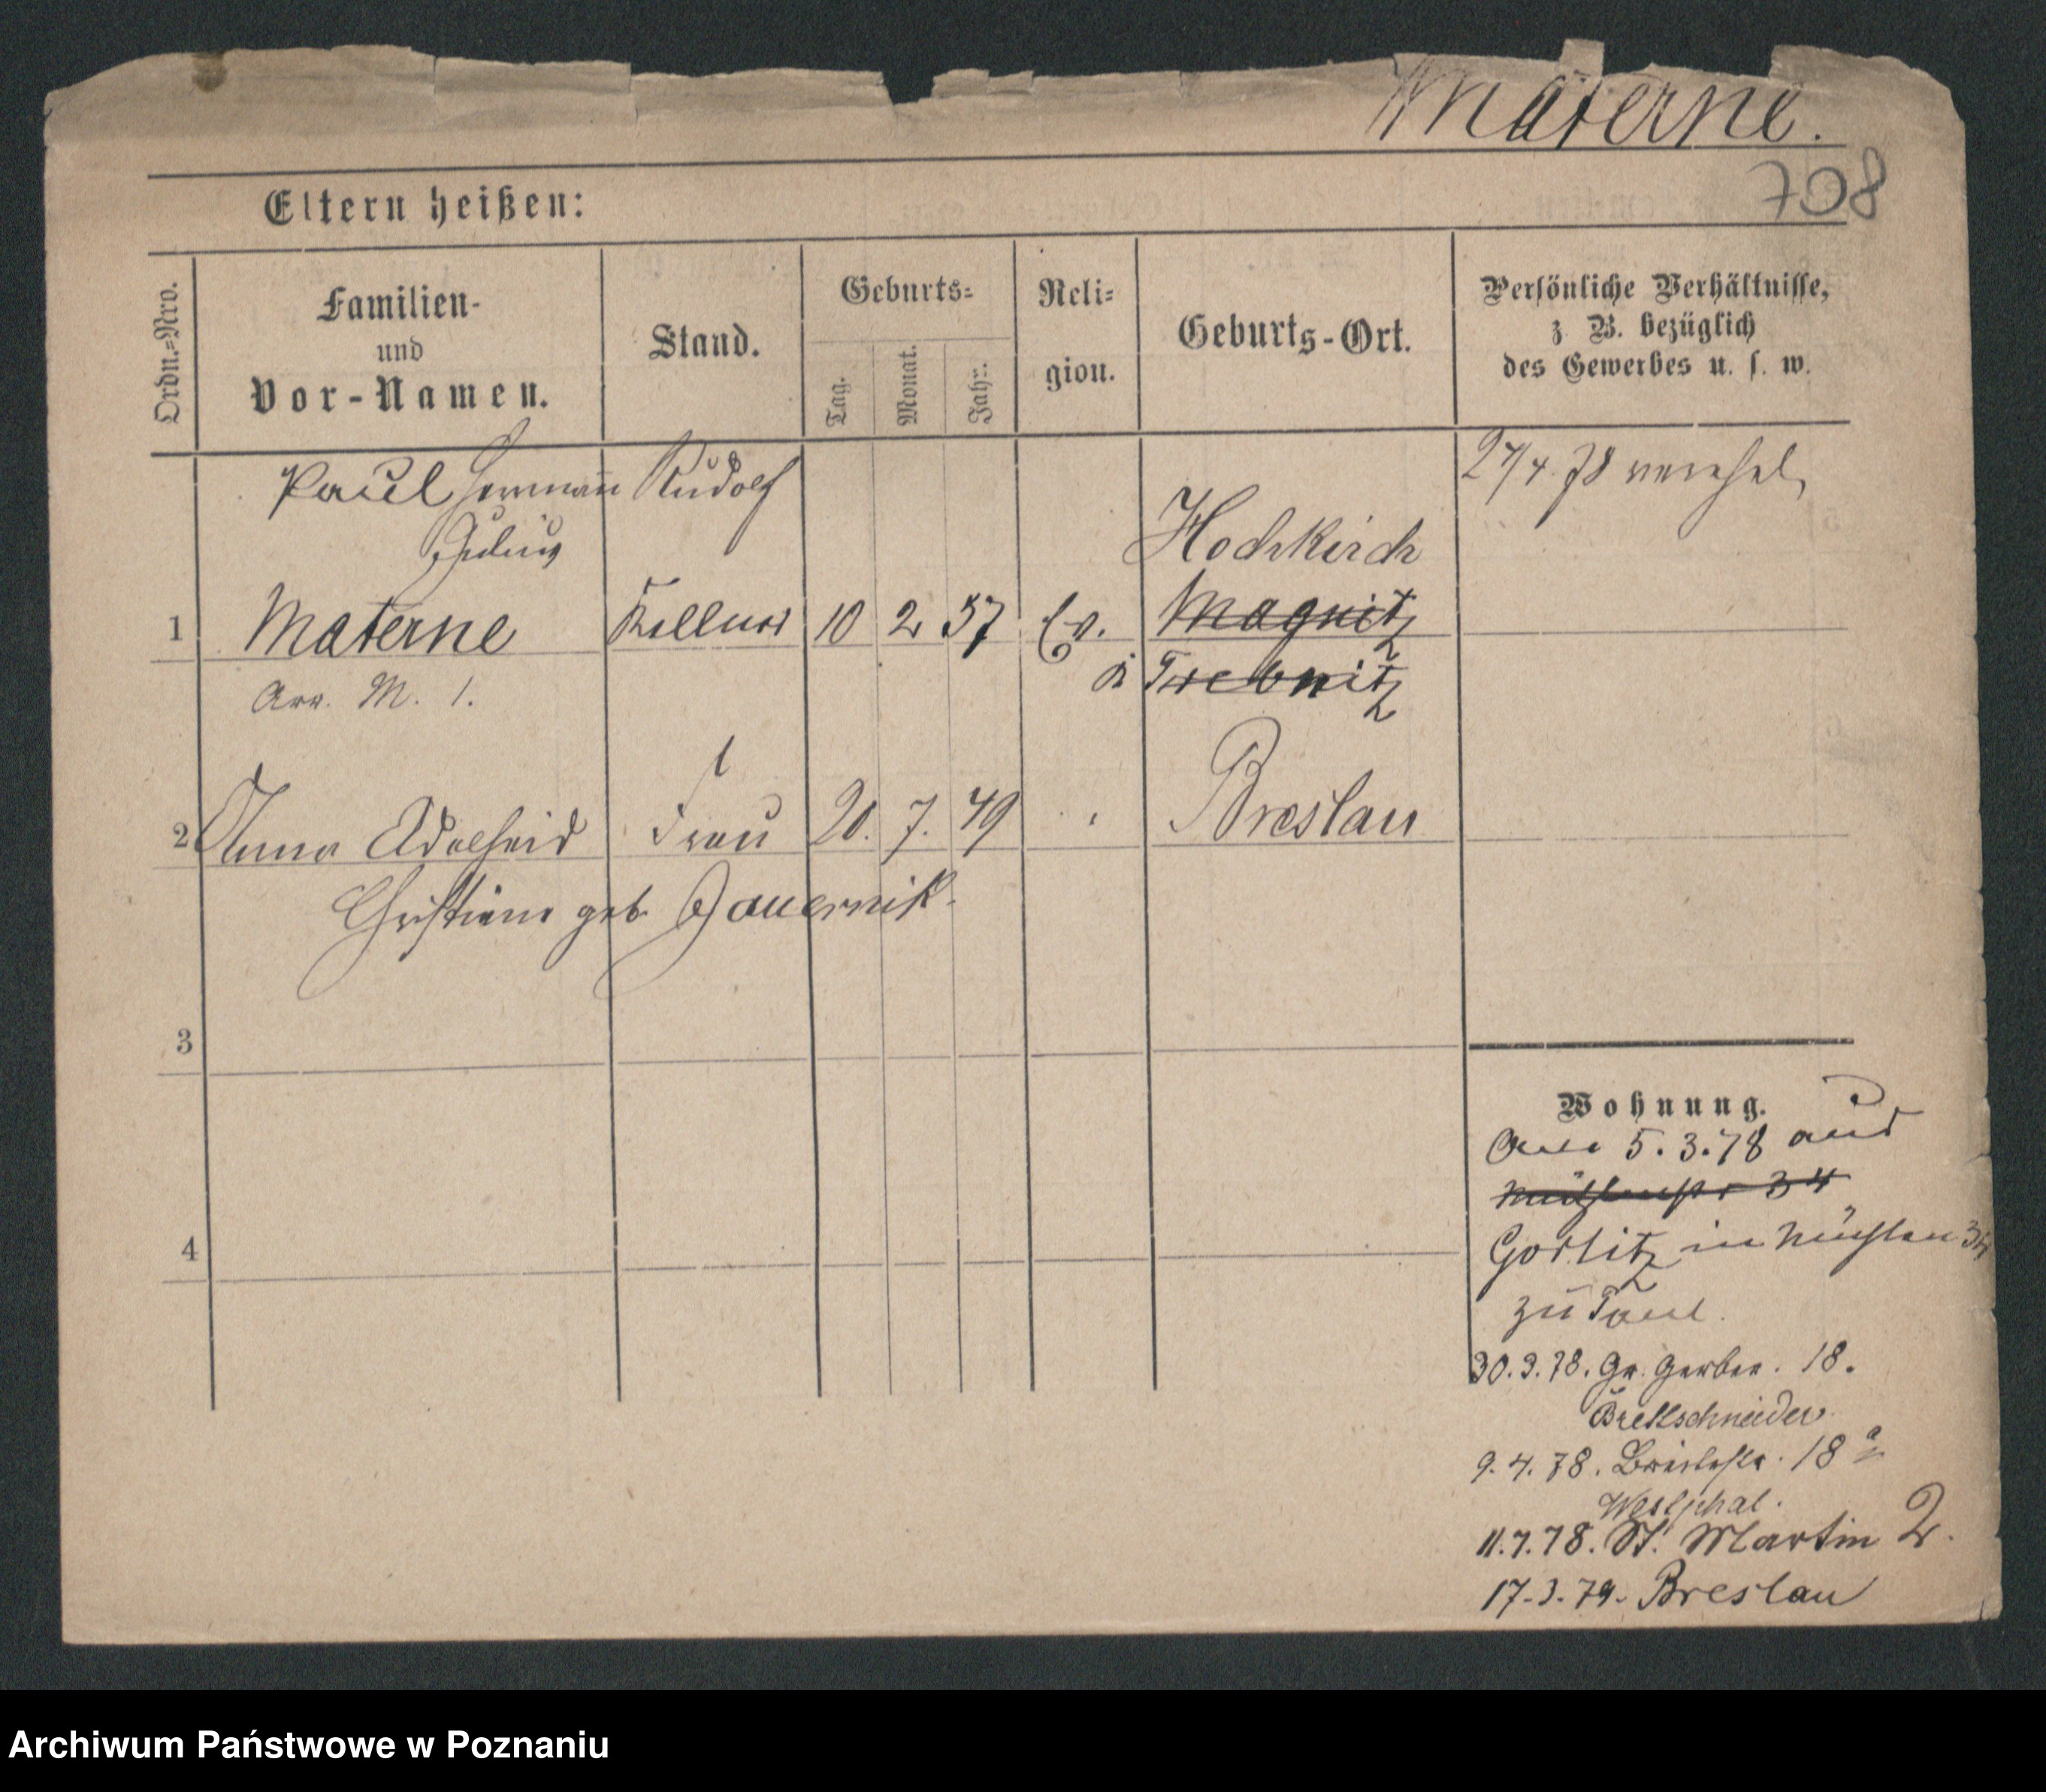 Materne.
708
Eltern heißen:
Ordn.=Nro.
Familien-
und
Vor-Namen.
Stand.
Geburts=
Tag.
Monat.
Jahr.
Reli=
gion.
Geburts-Ort.
Persönliche Verhältnisse,
z B. bezüglich
des Gewerbes u. s. w.
Paul Hermann Rudolf
Julius
1 Materne Kellner 10 2 57 Ev. Hochkirch
Magnitz
Trebnitz
Arr. M. 1.
27/4. 78 verehel.
2 Anna Adelheid Frau 20. 7. 49 Breslau
Christiane geb. Jauernik.
3
4
Wohnung.
5.3.78 aus
34
Gorlitz in Mühlen 34
zu
30.3.78. Gr. Gerber. 18.
Brettschneider
9.4.78. Breitestr. 18 a
Westphal.
11.7.78. St. Martin 2.
17.3.79. Breslau
Archiwum Państwowe w Poznaniu